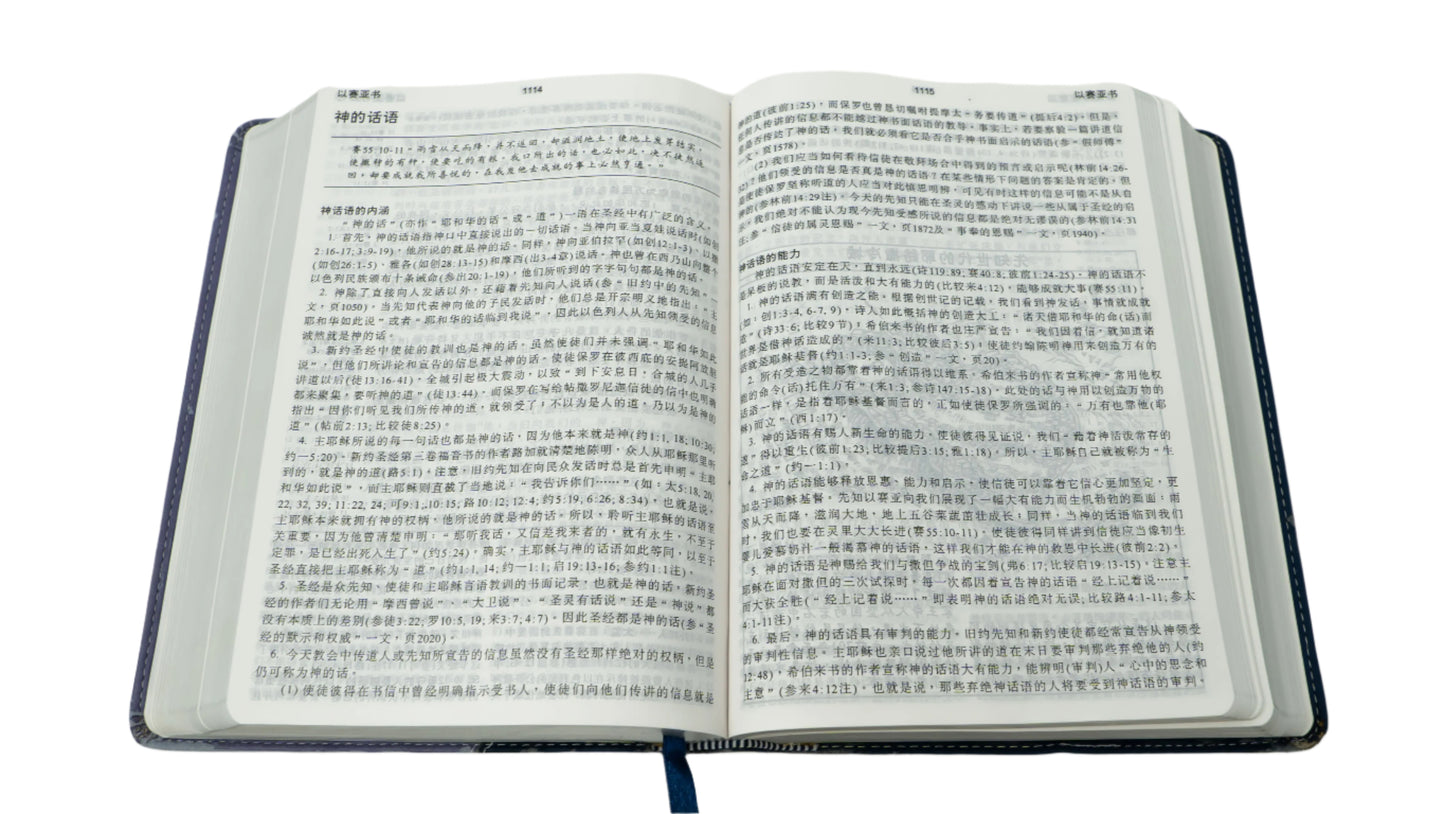 以赛亚书 1114
神的话语
赛55:10-11，“雨雪从天而降，并不返回，却滋润地土，使地上发芽结实，
使撒种的有种，使要吃的有粮。我口所出的话，也必如此，决不徒然返
回，却要成就我所喜悦的，在我发他去成就的事上必然亨通。”
神话语的内涵
“神的话”(亦作“耶和华的话”或“道”)一语在圣经中有广泛的含义。
1. 首先，神的话语指神口中直接说出的一切话语。当神向亚当夏娃说话时(如创
2:16-17; 3:9-19)，他所说的就是神的话。同样，神向亚伯拉罕(如创12:1-3)、以撒
(如创26:1-5)、雅各(如创28:13-15)和摩西(出3-4章)说话。神也曾在西乃山向整个
以色列民族颁布十条诫命(参出20:1-19)，他们所听到的字字句句都是神的话。
2. 神除了直接向人发话以外，还藉着先知向人说话(参“旧约中的先知”一
文，页1050)。当先知代表神向他的子民发话时，他们总是开宗明义地指出：“主
耶和华如此说”或者“耶和华的话临到我说”，因此以色列人从先知领受的信息
诚然就是神的话。
3. 新约圣经中使徒的教训也是神的话。虽然使徒们并未强调“耶和华如此
说”，但他们所讲论和宣告的信息都是神的话。使徒保罗在彼西底的安提阿放胆
讲道以后(徒13:16-41)，全城引起极大震动，以致“到下安息日，合城的人几乎
都来聚集，要听神的道”(徒13:44)，而保罗在写给帖撒罗尼迦信徒的信中也明确
指出“因你们听见我们所传神的道，就领受了；不以为是人的道，乃以为是神的
道”(帖前2:13; 比较徒8:25)。
4. 主耶稣所说的每一句话也都是神的话，因为他本来就是神(约1:1, 18; 10:30;
约一5:20)。新约圣经第三卷福音书的作者路加就清楚地陈明，众人从耶稣那里听
到的，就是神的道(路5:1)。注意，旧约先知在向民众发话时总是首先申明“主耶
和华如此说”，而主耶稣则直截了当地说：“我告诉你们……”(如：太5:18, 20,
22, 32, 39; 11:22, 24; 可9:1, 10:15; 路10:12; 12:4; 约5:19, 6:26; 8:34)，也就是说，
主耶稣本来就拥有神的权柄，他所说的就是神的话。所以，聆听主耶稣的话语至
关重要，因为他曾清楚申明：“那听我话，又信差我来者的，就有永生，不至于
定罪，是已经出死入生了”(约5:24)。确实，主耶稣与神的话语如此等同，以至于
圣经直接把主耶稣称为“道”(约1:1, 14; 约一1:1; 启19:13-16; 参约1:1注)。
5. 圣经是众先知、使徒和主耶稣言语教训的书面记录，也就是神的话。新约圣
经的作者们无论用“摩西曾说”、“大卫说”、“圣灵有话说”还是“神说”都
没有本质上的差别(参徒3:22; 罗10:5, 19; 来3:7; 4:7)。因此圣经都是神的话(参“圣
经的默示和权威”一文，页2020)。
6. 今天教会中传道人或先知所宣告的信息虽然没有圣经那样绝对的权柄，但是
仍可称为神的话。
(1) 使徒彼得在书信中曾经明确指示受书人，使徒们向他们传讲的信息就是
1115 以赛亚书
神的道(彼前1:25)，而保罗也曾恳切嘱咐提摩太：务要传道”(提后4:2)。但是，
人传讲的信息都不能越过神书面话语的教导。事实上，若要察验一篇讲道信
是否传达了神的话，我们就必须看它是否合乎神书面启示的话语(参“假师傅”
一文，页1578)。
(2) 我们应当如何看待信徒在敬拜场合中得到的预言或启示呢(林前14:26-
32)？他们领受的信息是否真是神的话语？在某些情形下问题的答案是肯定的，但
是使徒保罗坚称听道的人应当对此慎思明辨，可见有时这样的信息可能不是从自
神的(参林前14:29注)。今天的先知只能在圣灵的感动下讲说一些从属于圣经的启
，我们绝对不能认为现今先知受感所说的信息都是绝对无谬误的(参林前14:31
注; 参“信徒的属灵恩赐”一文，页1872及“事奉的恩赐”一文，页1940)。
神话语的能力
神的话语安定在天，直到永远(诗119:89; 赛40:8; 彼前1:24-25)。神的话语不
是呆板的说教，而是活泼和大有能力的(比较来4:12)，能够成就大事(赛55:11)。
1. 神的话语满有创造之能。根据创世记的记载，我们看到神发话，事情就成就
(如：创1:3-4, 6-7, 9)，诗人如此概括神的创造大工：“诸天借耶和华的命(话)而
”(诗33:6; 比较9节)；希伯来书的作者也庄严宣告：“我们因着信，就知道诸
世界是借神话造成的”(来11:3; 比较彼后3:5)。使徒约翰陈明神用来创造万有的
话就是耶稣基督(约1:1-3; 参“创造”一文，页20)。
2. 所有受造之物都靠着神的话语得以维系。希伯来书的作者宣称神“常用他权
能的命令(话)托住万有”(来1:3; 参诗147:15-18)。此处的话与神用以创造万物的
话语一样，是指着耶稣基督而言的，正如使徒保罗所强调的：“万有也靠他(耶
稣)而立”(西1:17)。
3. 神的话语有赐人新生命的能力。使徒彼得见证说，我们“藉着神活泼常存的
道”得以重生(彼前1:23; 比较提后3:15; 雅1:18)。所以，主耶稣自己就被称为“生
命之道”(约一1:1)。
4. 神的话语能够释放恩惠、能力和启示，使信徒可以靠着它信心更加坚定，更
加忠于耶稣基督。先知以赛亚向我们展现了一幅大有能力而生机勃勃的画面：雨
雪从天而降，滋润大地，地上五谷菜蔬茁壮成长；同样，当神的话语临到我们
时，我们也要在灵里大大长进(赛55:10-11)。使徒彼得同样讲到信徒应当像初生
婴儿爱慕奶汁一般渴慕神的话语，这样我们才能在神的救恩中长进(彼前2:2)。
5. 神的话语是神赐给我们与撒但争战的宝剑(弗6:17; 比较启19:13-15)。注意主
耶稣在面对撒但的三次试探时，每一次都因着宣告神的话语“经上记着说……”
而大获全胜(“经上记着说……”即表明神的话语绝对无误; 比较路4:1-11; 参太
4:1-11注)。
6. 最后，神的话语具有审判的能力。旧约先知和新约使徒都经常宣告从神领受
的审判性信息。主耶稣也亲口说过他所讲的道在末日要审判那些弃绝他的人(约
12:48)，希伯来书的作者宣称神的话语大有能力，能辨明(审判)人“心中的思念和
主意”(参来4:12注)。也就是说，那些弃绝神话语的人将要受到神话语的审判。